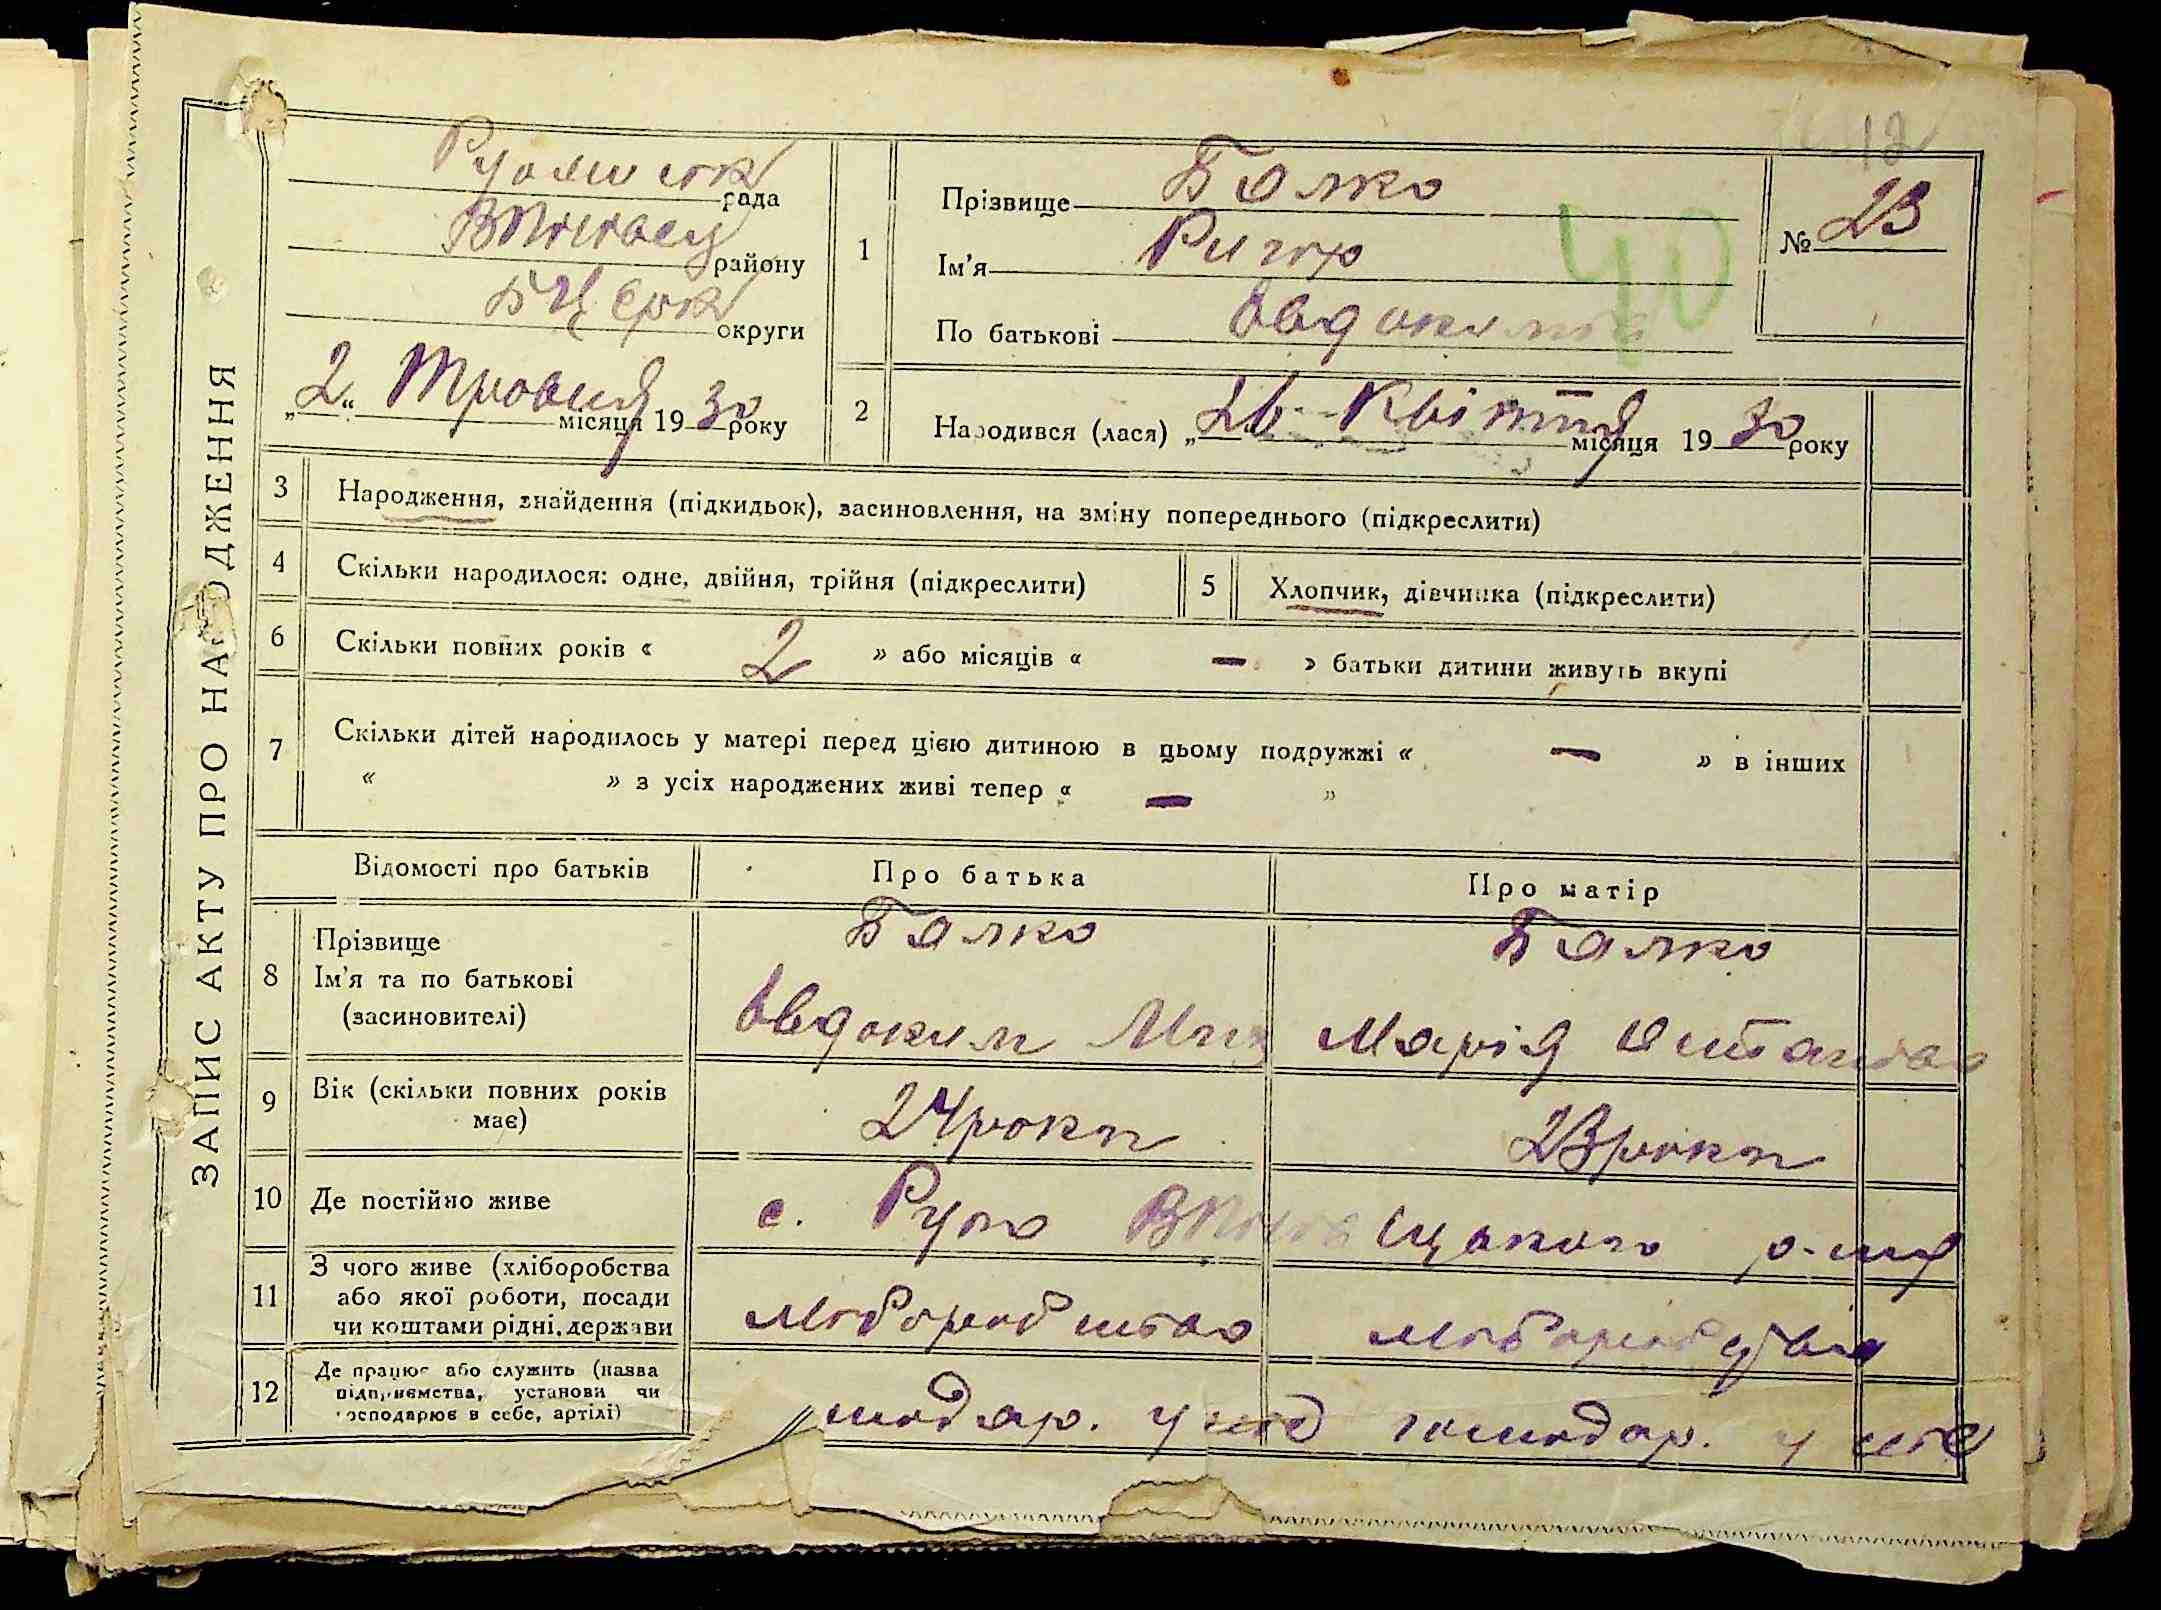 12
ЗАПИС АКТУ ПРО НАРОДЖЕННЯ
рада
району
БЦерк
округи
„2“ Травня місяця 1930 року
1
Прізвище Балко
Ім'я Ригор
По батькові Овдокимов
40
№ 23
2
Народився (лася) „26 Квітня місяця 1930 року
3 Народження, знайдення (підкидьок), засиновлення, на зміну попереднього (підкреслити)
4 Скільки народилося: одне, двійня, трійня (підкреслити)
5 Хлопчик, дівчинка (підкреслити)
6 Скільки повних років « 2 » або місяців « — » батьки дитини живуть вкупі
7 Скільки дітей народилось у матері перед цією дитиною в цьому подружжі « — » в інших
« » з усіх народжених живі тепер « — »
Відомості про батьків Про батька Про матір
8 Прізвище Балко Балко
Ім'я та по батькові
(засиновителі) Овдоким Марія
9 Вік (скільки повних років
має) 24 роки 23 роки
10 Де постійно живе с. Руда р-ну
11 З чого живе (хліборобства
або якої роботи, посади
чи коштами рідні, держави
хліборобство
12 Де працює або служить (назва
підприємства, установи чи
господарює в себе, артілі)
сподар. у себе господар. у себе